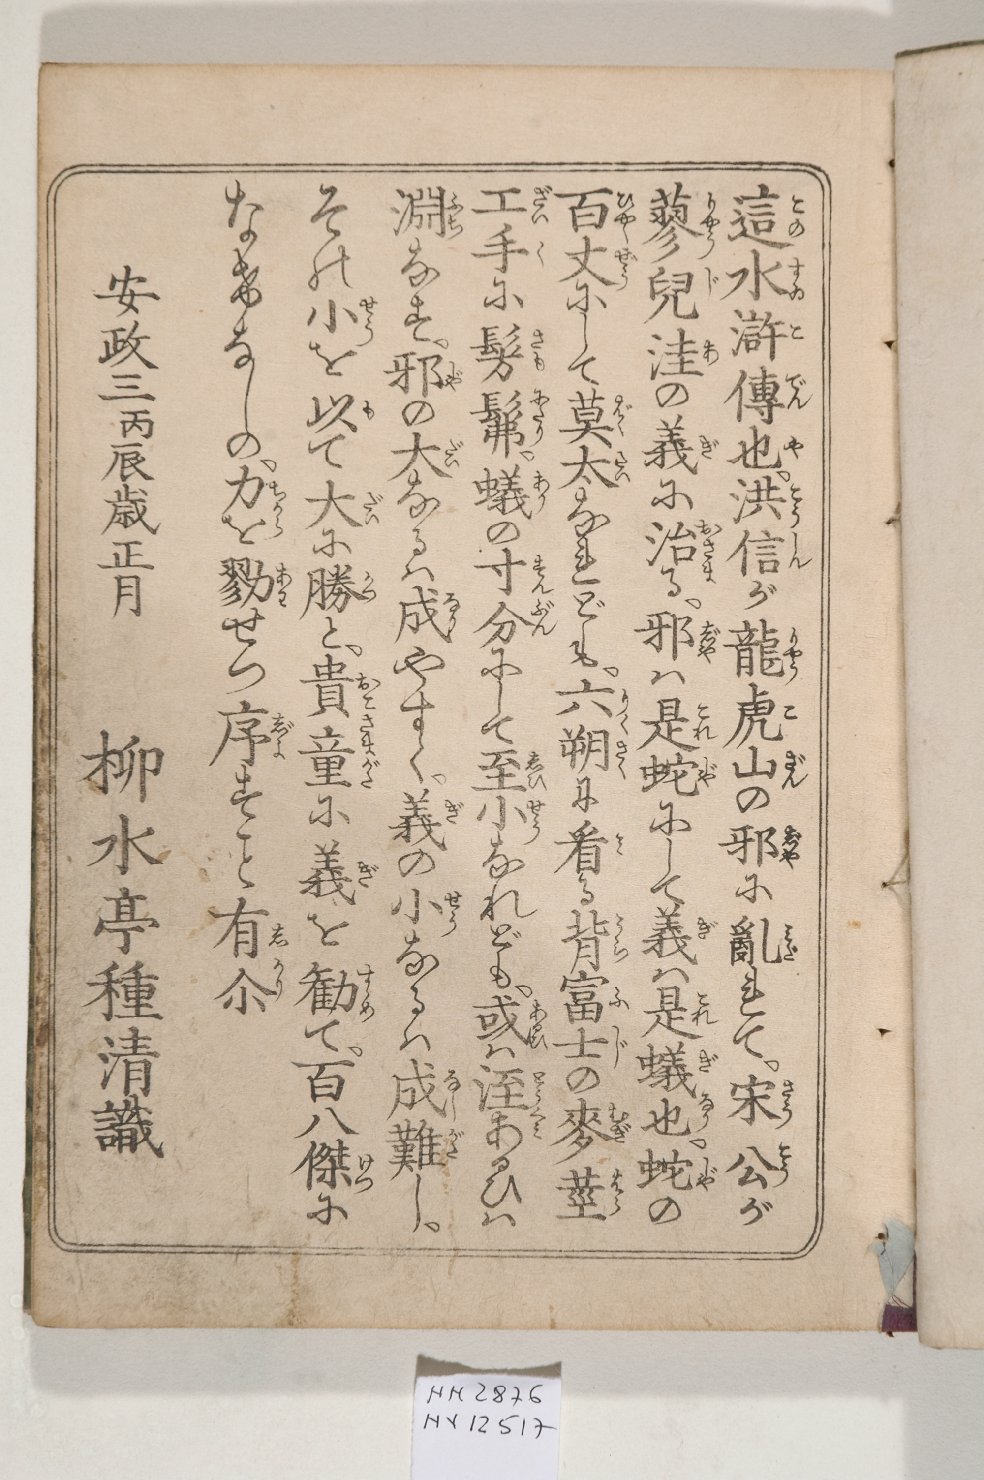 這水滸傳也。洪信が龍虎山の邪に亂れて。宋公が
蓼兒洼の義に治る。邪ハ是蛇にして義ハ是蟻也。蛇の
百丈にして莫太なれども。六朔に看る背冨士の麥莖
工手に髣髴。蟻の寸分にして至小なれども。或ハ洷あるひハ
淵をなす。邪の大なるハ成やすく。義の小なるハ成難し。
その小を以て大に勝と。貴童に義を勧て。百八傑に
なきなしの。力を勠せつ序すこと有尒
安政三丙辰歳正月
柳水亭種清識
HH2876
HY12517